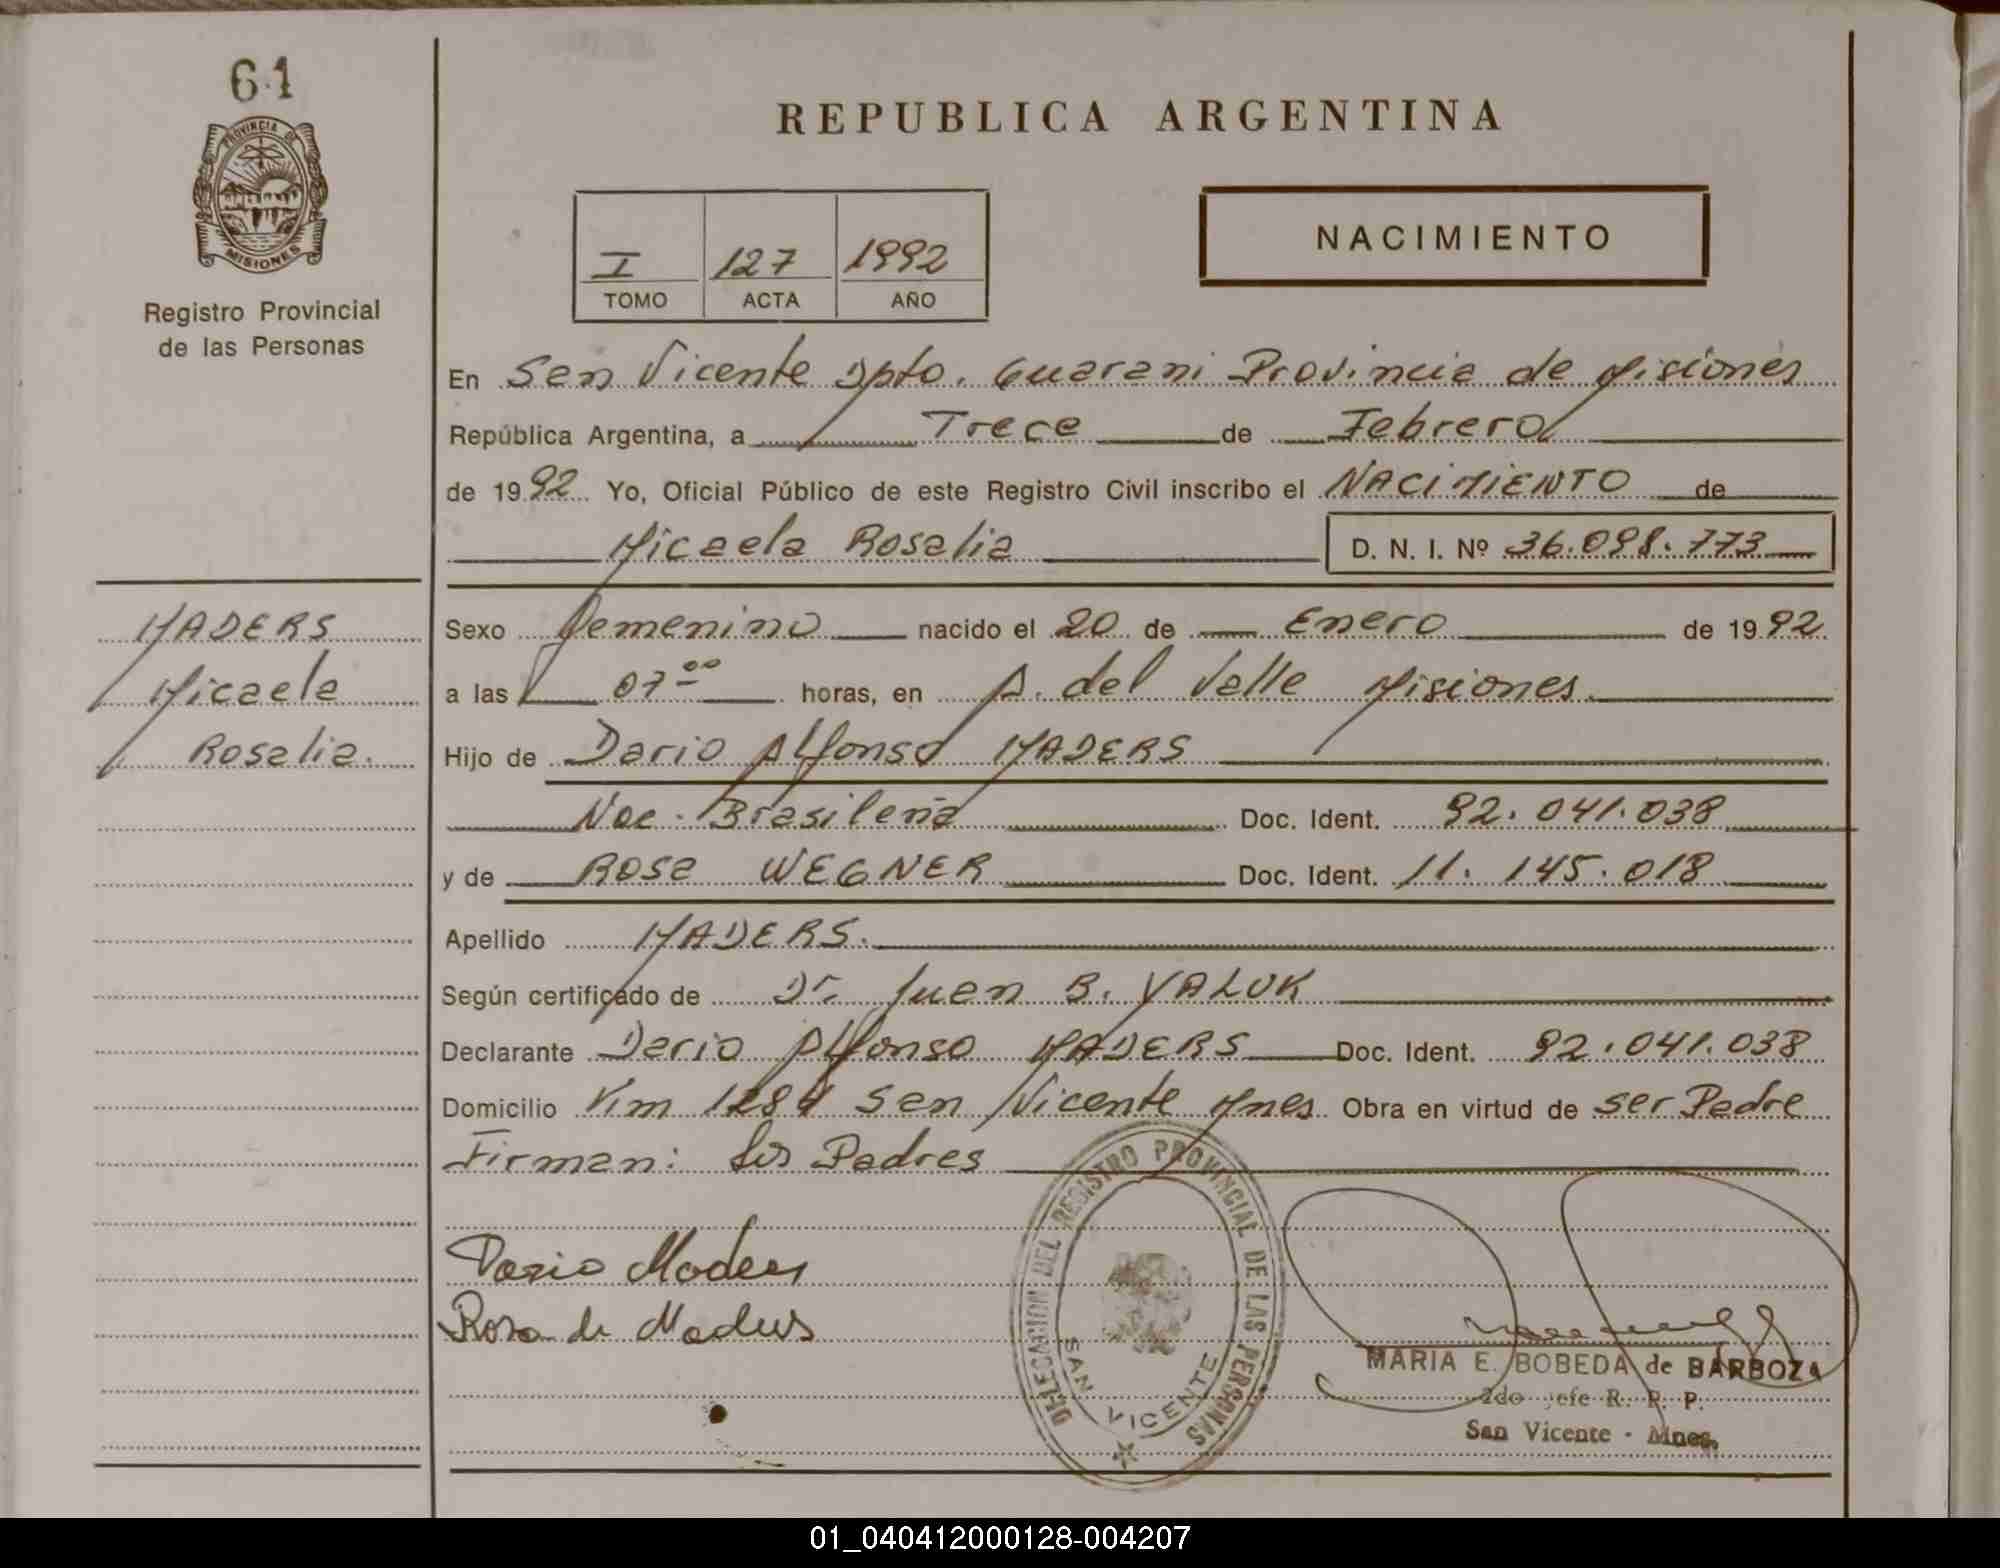 61
PROVINCIA DE
MISIONES
Registro Provincial
de las Personas
MADERS
Micaela
Rosalia.
REPUBLICA ARGENTINA
I 127 1992
TOMO ACTA AÑO
NACIMIENTO
En San Vicente Dpto. Guarani Provincia de Misiones
República Argentina, a Trece de Febrero
de 1992 Yo, Oficial Público de este Registro Civil inscribo el NACIMIENTO de
Micaela Rosalia D. N. I. Nº 36.098.773
Sexo Femenino nacido el 20 de Enero de 1992
a las 07 00 horas, en A. del Valle Misiones.
Hijo de Dario Alfonso MADERS
Nac. Brasileña Doc. Ident. 92.041.038
y de Rosa WEGNER Doc. Ident. 11.145.018
Apellido MADERS.
Según certificado de Dr. Juan B. YALUK
Declarante Dario Alfonso MADERS Doc. Ident. 92.041.038
Domicilio Km 1284 San Vicente Mnes Obra en virtud de ser Padre
Firman: Los Padres
Dario Maders
Rosa de Maders
DELEGACION DEL REGISTRO PROVINCIAL DE LAS PERSONAS
SAN VICENTE
MARIA E. BOBEDA de BARBOZA
2do Jefe R. P. P.
San Vicente - Mnes.
01_040412000128-004207